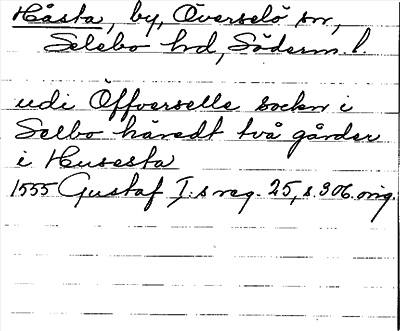 Håsta, by, Överselö sn,
Selebo hd, Söderm. l.
udi Öffverselle sockn i
Selbo häredt två gårder
i Husesta
1555 Gustaf I:s reg. 25, s. 306. orig.